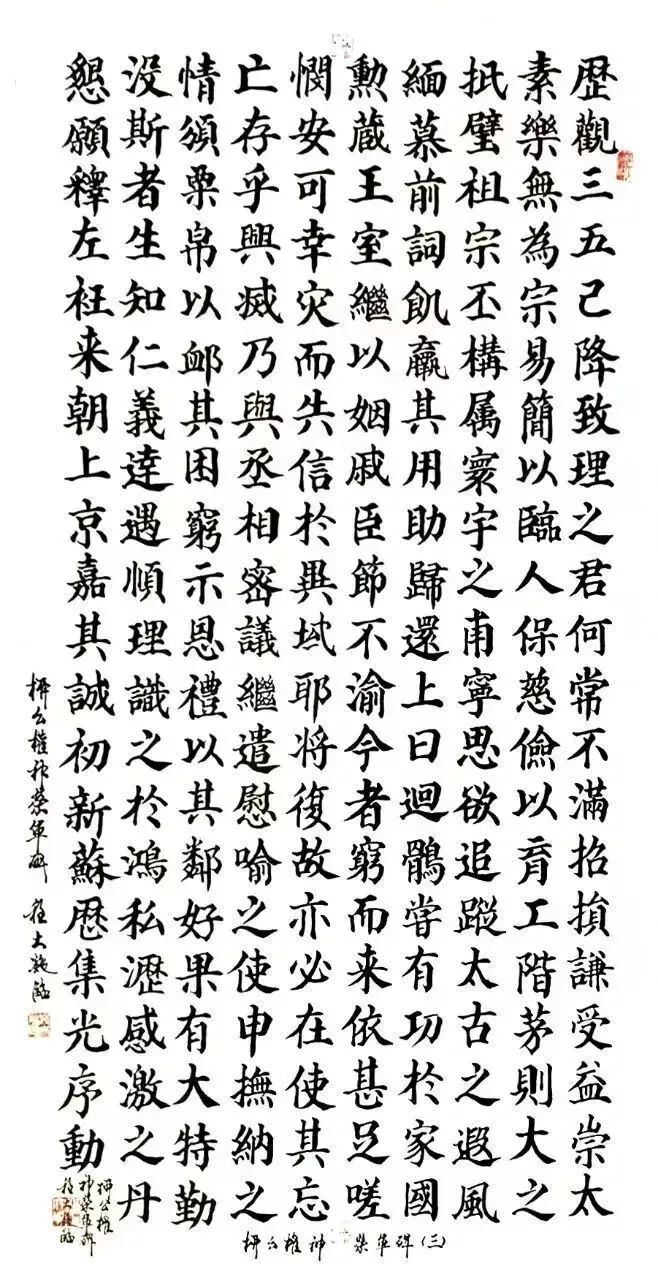 歴觀三五已降致理之君何常不滿招損謙受益崇太
素樂無為宗易簡以臨人保慈儉以育工階茅則大之
抵璧祖宗丕構属寰宇之甫寧思欲追蹤太古之遐風
緬慕前詞飢羸其用助歸還上曰迴鶻嘗有功於家國
勳蔵王室繼以姻戚臣節不渝今者窮而来依甚足嗟
憫安可幸灾而失信於異域耶将復故亦必在使其忘
亡存乎興滅乃與丞相密議繼遣慰喻之使申撫納之
情頒粟帛以䘏其困窮示恩禮以其鄰好果有大特勤
没斯者生知仁義達遇順理識之於鴻私瀝感激之丹
懇願釋左衽来朝上京嘉其誠初新蘇歴集光序動
柳公權神策軍碑 程大臨
柳公權
神策軍碑
柳公權神策軍碑(三)